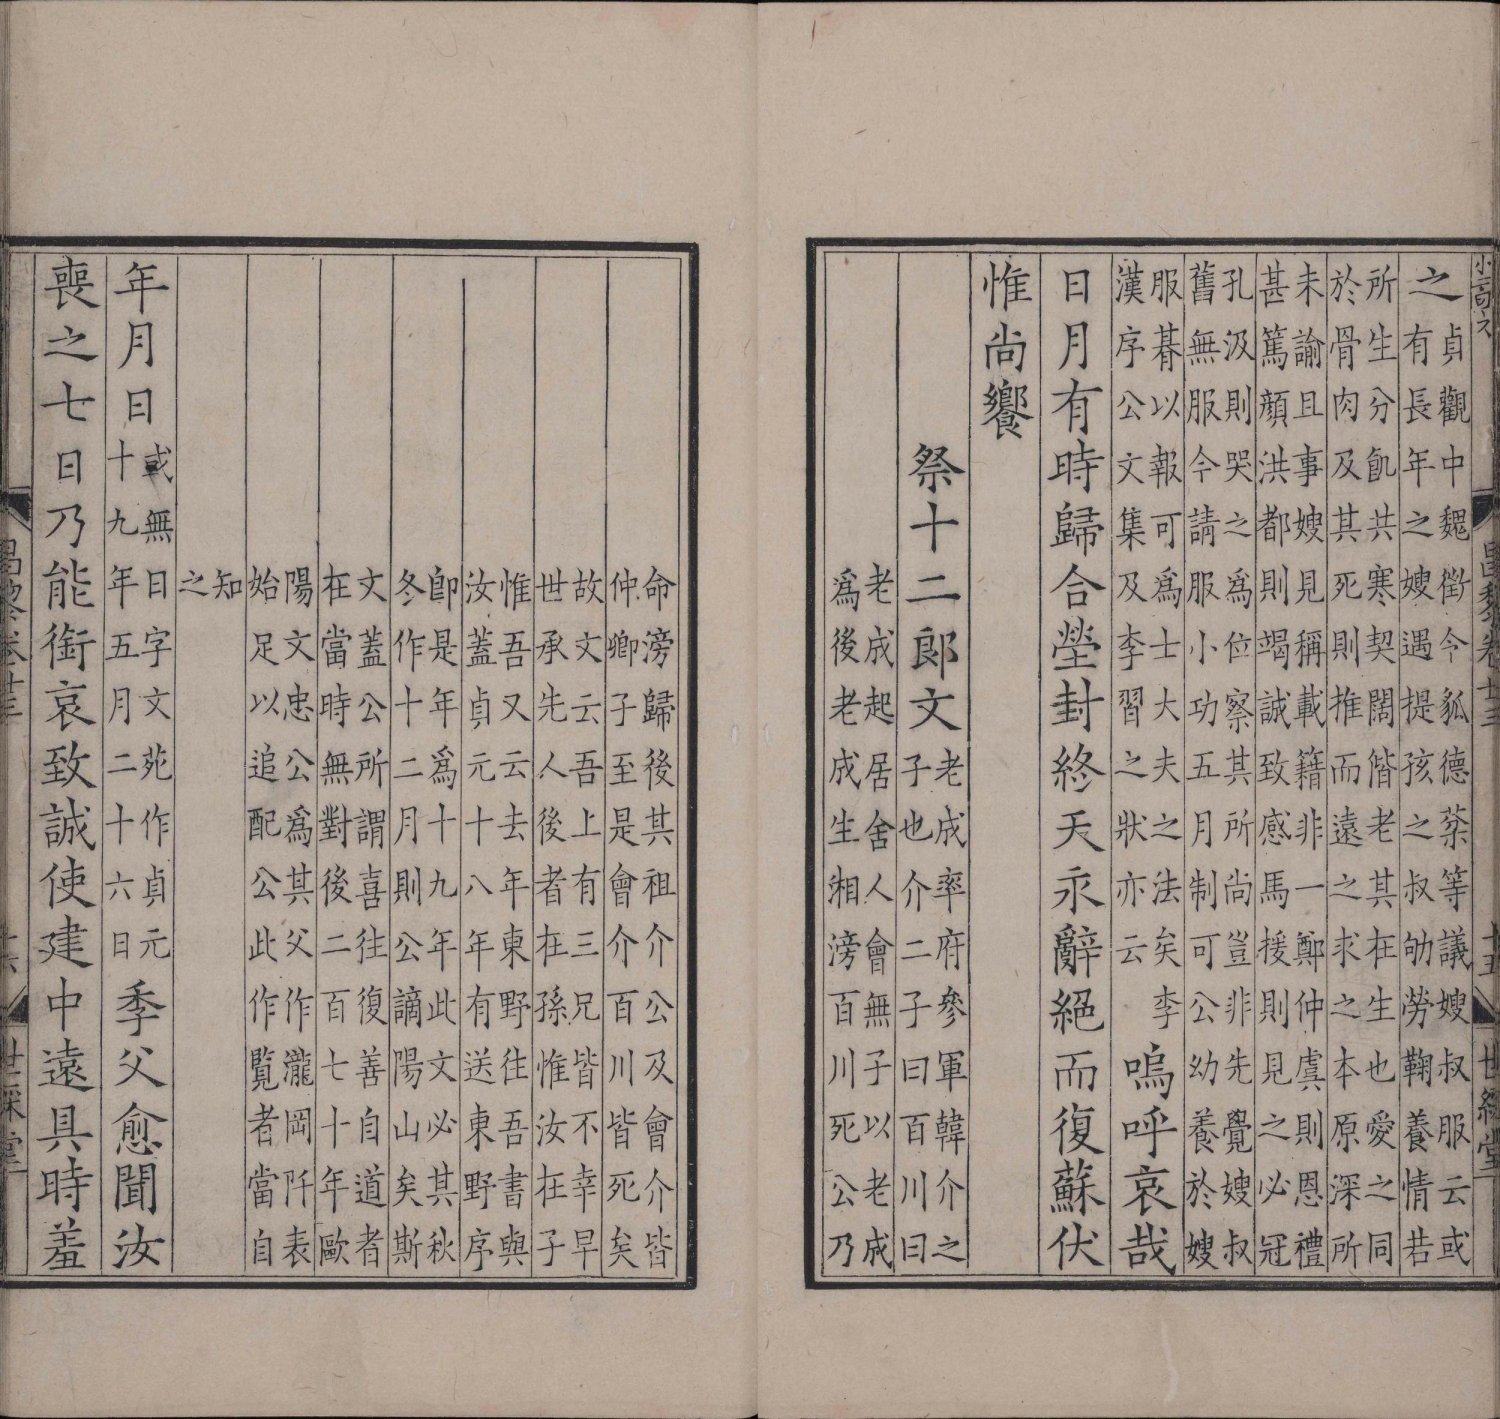 昌黎卷廿三 十五 世綵堂
之貞觀中魏徵令狐德棻等議嫂叔服云或
有長年之嫂遇提孩之叔劬勞鞠養情若
所生分飢共寒契闊偕老其在生也愛之同
於骨肉及其死則推而遠之求之本原深所
未諭且事嫂見稱載籍非一鄭仲虞則恩禮
甚篤顔洪都則竭誠致感馬援則見之必冠
孔汲則哭之爲位察其所尚豈非先覺嫂叔
舊無服今請服小功五月制可公幼養於嫂
服朞以報可爲士大夫之法矣李
漢序公文集及李習之狀亦云
嗚呼哀哉
日月有時歸合塋封終天永辭絕而復蘇伏
惟尚饗
祭十二郎文老成率府參軍韓介之
子也介二子曰百川曰
老成起居舍人會無子以老成
爲後老成生湘滂百川死公乃
命滂歸後其祖介介公及會介皆
仲卿子至是會介百川皆死矣
故文云吾上有三兄皆不幸早
世承先人後者在孫惟汝在子
惟吾又云去年東野往吾書與
汝蓋貞元十八年有送東野序
卽是年爲十九年此文必其秋
冬作十二月則公謫陽山矣斯
文蓋公所謂喜往復善自道者
在當時無對後二百七十年歐
陽文忠公爲其父作瀧岡阡表
始足以追配公此作覧者當自
知
之
年月日或無日字文苑作貞元
十九年五月二十六日
季父愈聞汝
喪之七日乃能銜哀致誠使建中遠具時羞
昌黎卷廿三 十六 世綵堂